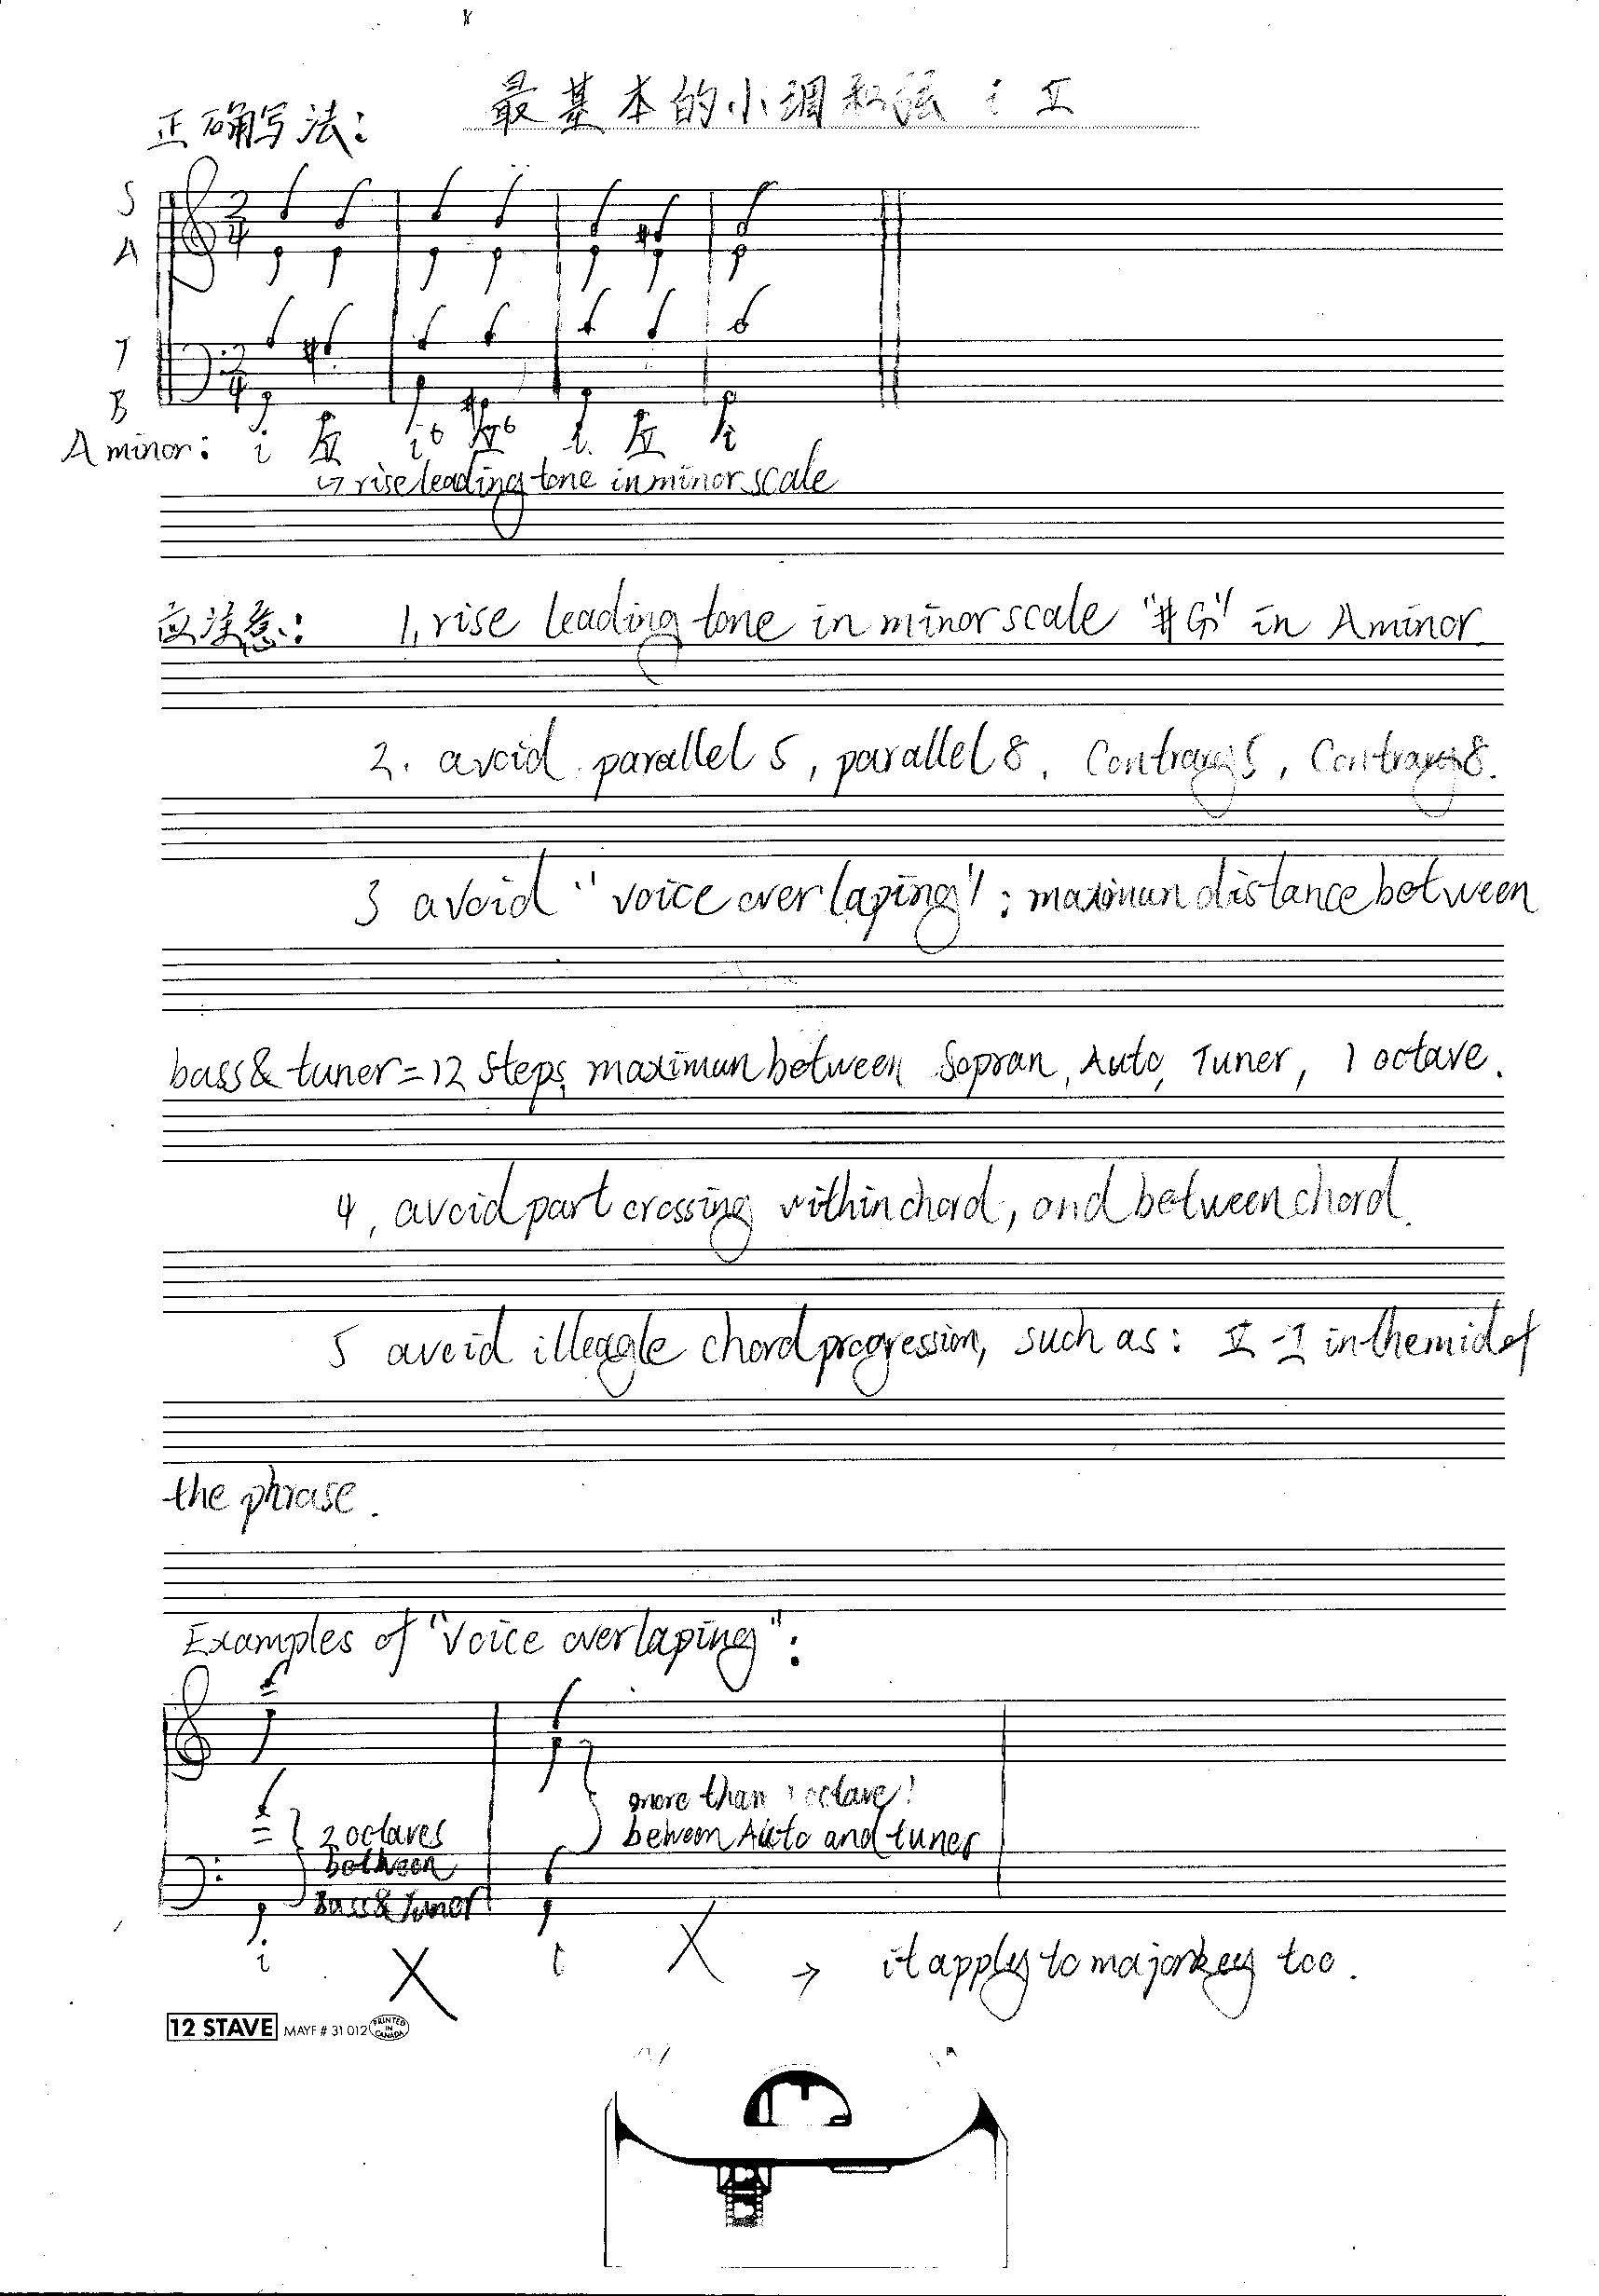 最基本的小调和弦 i V
正确写法:
S
A
T
B
2
4
2
4
A minor: i V i6 V6 i V i
↳ rise leading tone in minor scale
应注意: 1, rise leading tone in minor scale "#G" in A minor.
2. avoid parallel 5, parallel 8. Contrary 5, Contrary 8.
3 avoid "voice overlaping": maximun distance between
bass & tuner = 12 steps, maximun between Sopran, Auto, Tuner, 1 octave.
4, avoid part crossing within chord, and between chord.
5 avoid illeagle chord progression, such as: V - I in the mid of
the phrase.
Examples of "Voice overlaping":
more than 1 octave!
beween Auto and tuner
2 octaves
between
Bass & Tuner
i X i X → it apply to major key too.
12 STAVE MAYF # 31 012 PRINTED IN CANADA